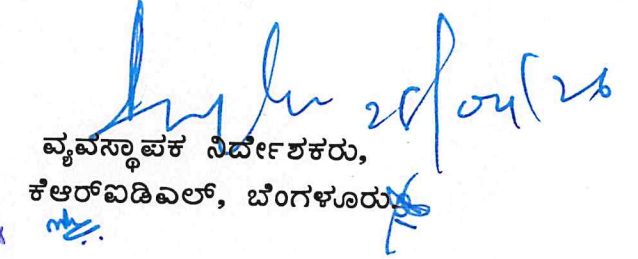 28/04/26
ವ್ಯವಸ್ಥಾಪಕ ನಿರ್ದೇಶಕರು,
ಕೆಆರ್‌ಐಡಿಎಲ್, ಬೆಂಗಳೂರು.